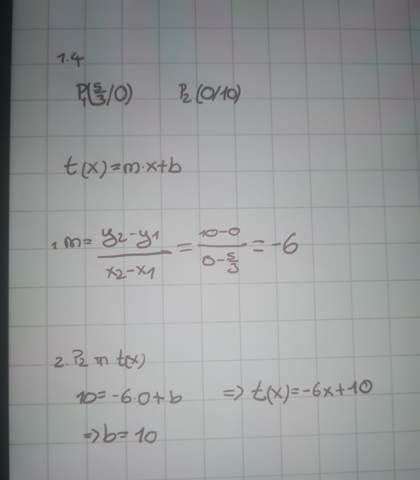 1.4
P₁(5/3/0) P₂(0/10)
t(x)=m·x+b
1. m= y₂-y₁/x₂-x₁ = 10-0/0-5/3 = -6
2. P₂ in t(x)
10=-6·0+b => t(x)=-6x+10
=> b=10